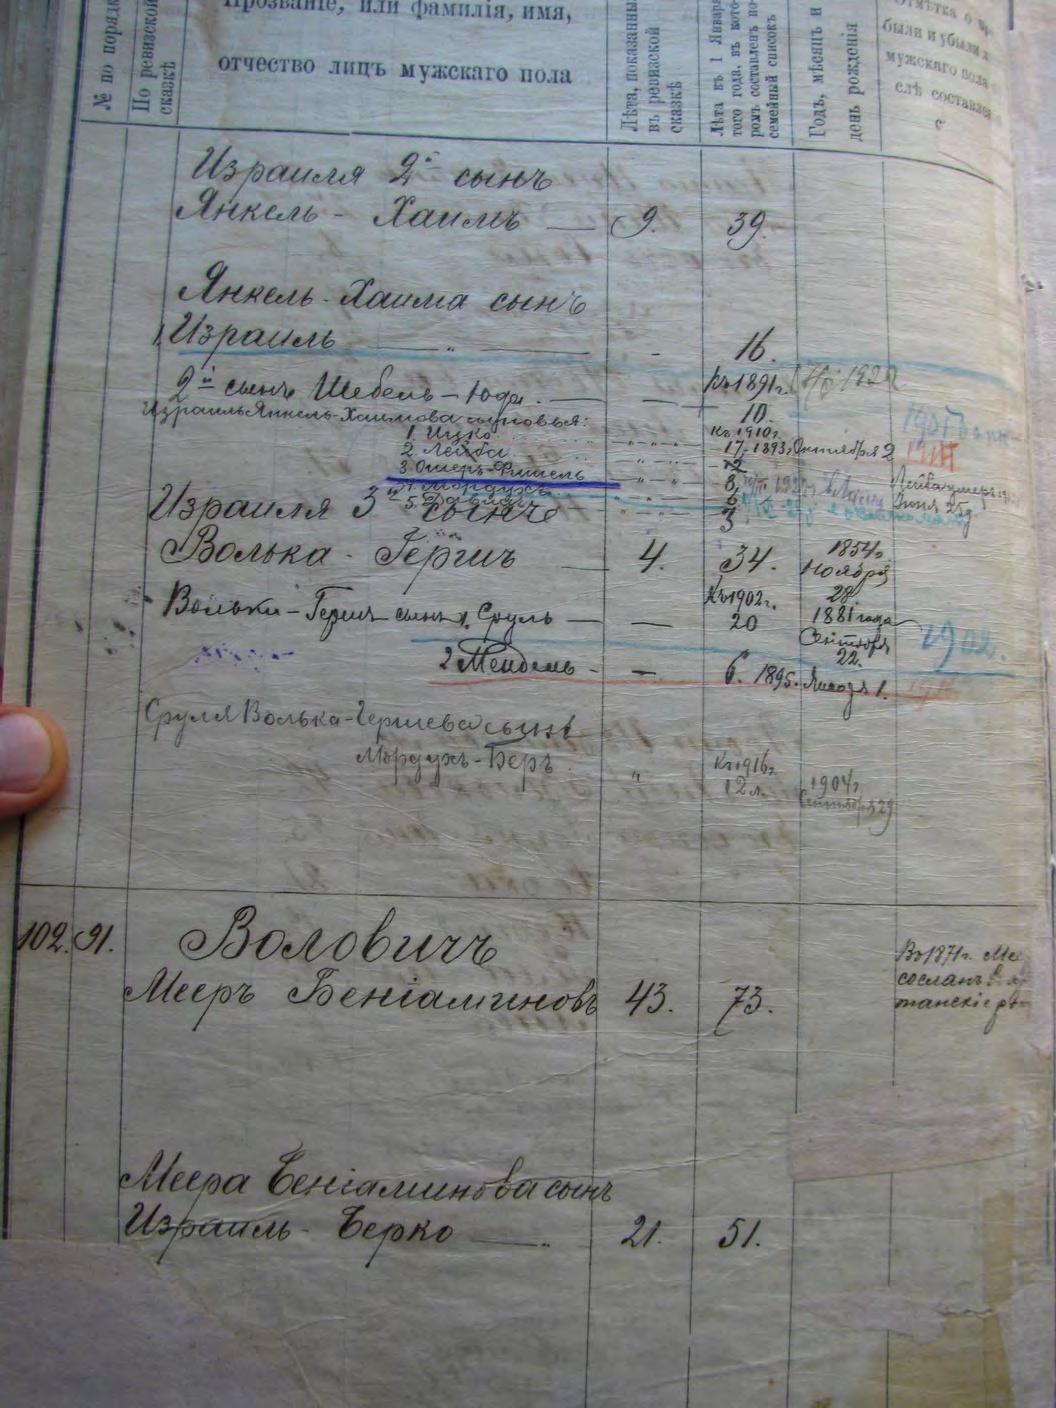 № по порядк
По ревизской
сказкѣ
Прозваніе, или фамилія, имя,
отчество лицъ мужскаго пола
Лѣта, показанныя
въ ревизской
сказкѣ
Лѣта къ 1 Января
того года, въ кото-
ромъ составленъ по-
семейный списокъ
Годъ, мѣсяцъ и
день рожденія
Отмѣтка о
были и убыли
мужскаго пола
слѣ составле
с
Израиля 2й сынъ
Янкель - Хаимъ — 9. 39.
Янкель - Хаима сынъ
1 Израиль — „ — - 16.
2й сынъ Шебель - Юда. — — къ 1891г.
10.
Израиль Янкель-Хаимова сыновья: къ 1910г.
1. Ицко 17. 1893. Октября 2
2. Лейба 12
3. Ошеръ-Фишель 8
4. Мордухъ 6
5. Давидъ 3
Израиля 3й сынъ
Волька - Гершъ — 4. 34. 1854г.
Ноября
28
Вольки - Гершъ сынъ 1. Сруль — — Къ 1902г.
20 1881 года
Сентября
22.
1902.
2 Мендель - — 6. 1895. Января 1.
Сруля Волька-Гершева сынъ
Мордухъ - Беръ. „ Къ 1916г.
12 л. 1904г.
Сентября 29
102. 91. Воловичъ
Мееръ Беніаминовъ 43. 73.
Въ 1871г. Мее
сосланъ въ
танскіе
Меера Беніаминова сынъ
Израиль - Берко — 21. 51.